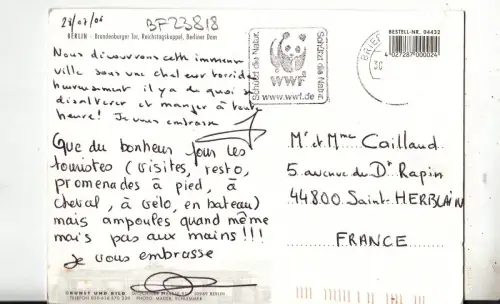 27/07/06
BF23818
BERLIN - Brandenburger Tor, Reichstagskuppel, Berliner Dom
Nous découvrons cette immense
ville sous une chaleur torride
heureusement il y a de quoi se
désaltérer et manger à toute
heure! Je vous embrasse
Que du bonheur pour les
touristes (visites, resto,
promenades à pied, à
cheval, à vélo, en bateau)
mais ampoules quand même
mais pas aux mains!!!
Je vous embrasse
Schützt die Natur
WWF
www.wwf.de
Schützt die Natur
BRIEF
BESTELL-NR. 04432
4 027287 000024
Mr et Mme Caillaud
5 avenue du Dr Rapin
44800 Saint-HERBLAIN
FRANCE
KUNST UND BILD
BERLIN